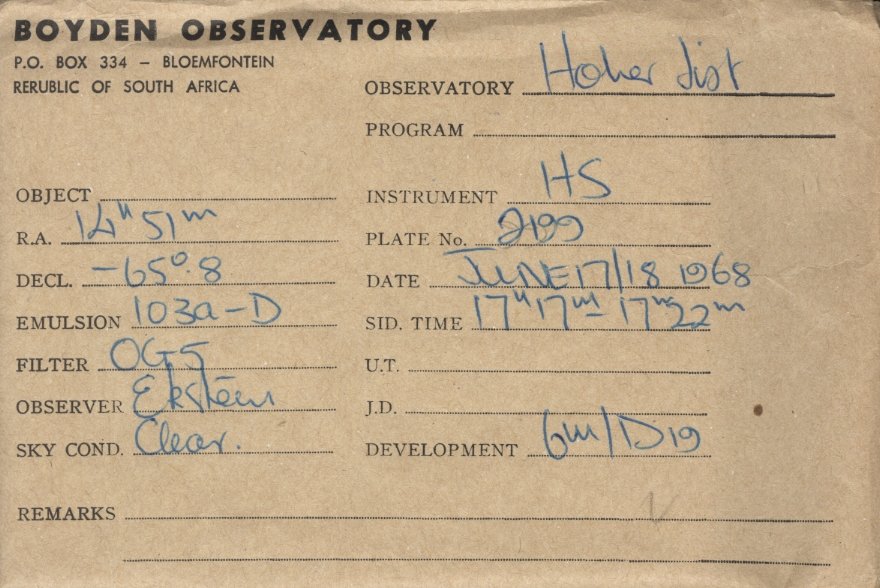 BOYDEN OBSERVATORY
P.O. BOX 334 – BLOEMFONTEIN
RERUBLIC OF SOUTH AFRICA
OBSERVATORY Hoher List
PROGRAM
OBJECT
INSTRUMENT HS
R.A. 14h 51m
PLATE No. 2199
DECL. -65°.8
DATE JUNE 17/18 1968
EMULSION 103a-D
SID. TIME 17h17m - 17h22m
FILTER OG5
U.T.
OBSERVER Eksteen
J.D.
SKY COND. Clear.
DEVELOPMENT 6m/D19
REMARKS